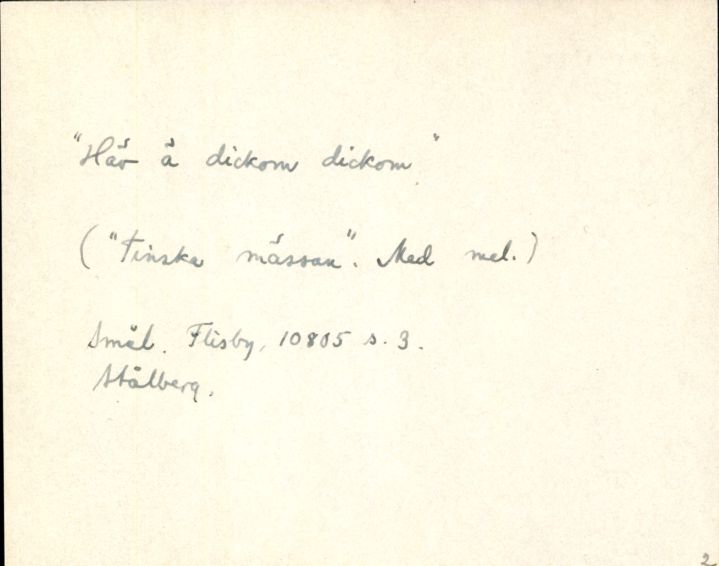 "Häv å dickom dickom"
("Finska mässan". Med mel.)
Smål. Flisby, 10805 s. 3.
Stålberg.
2